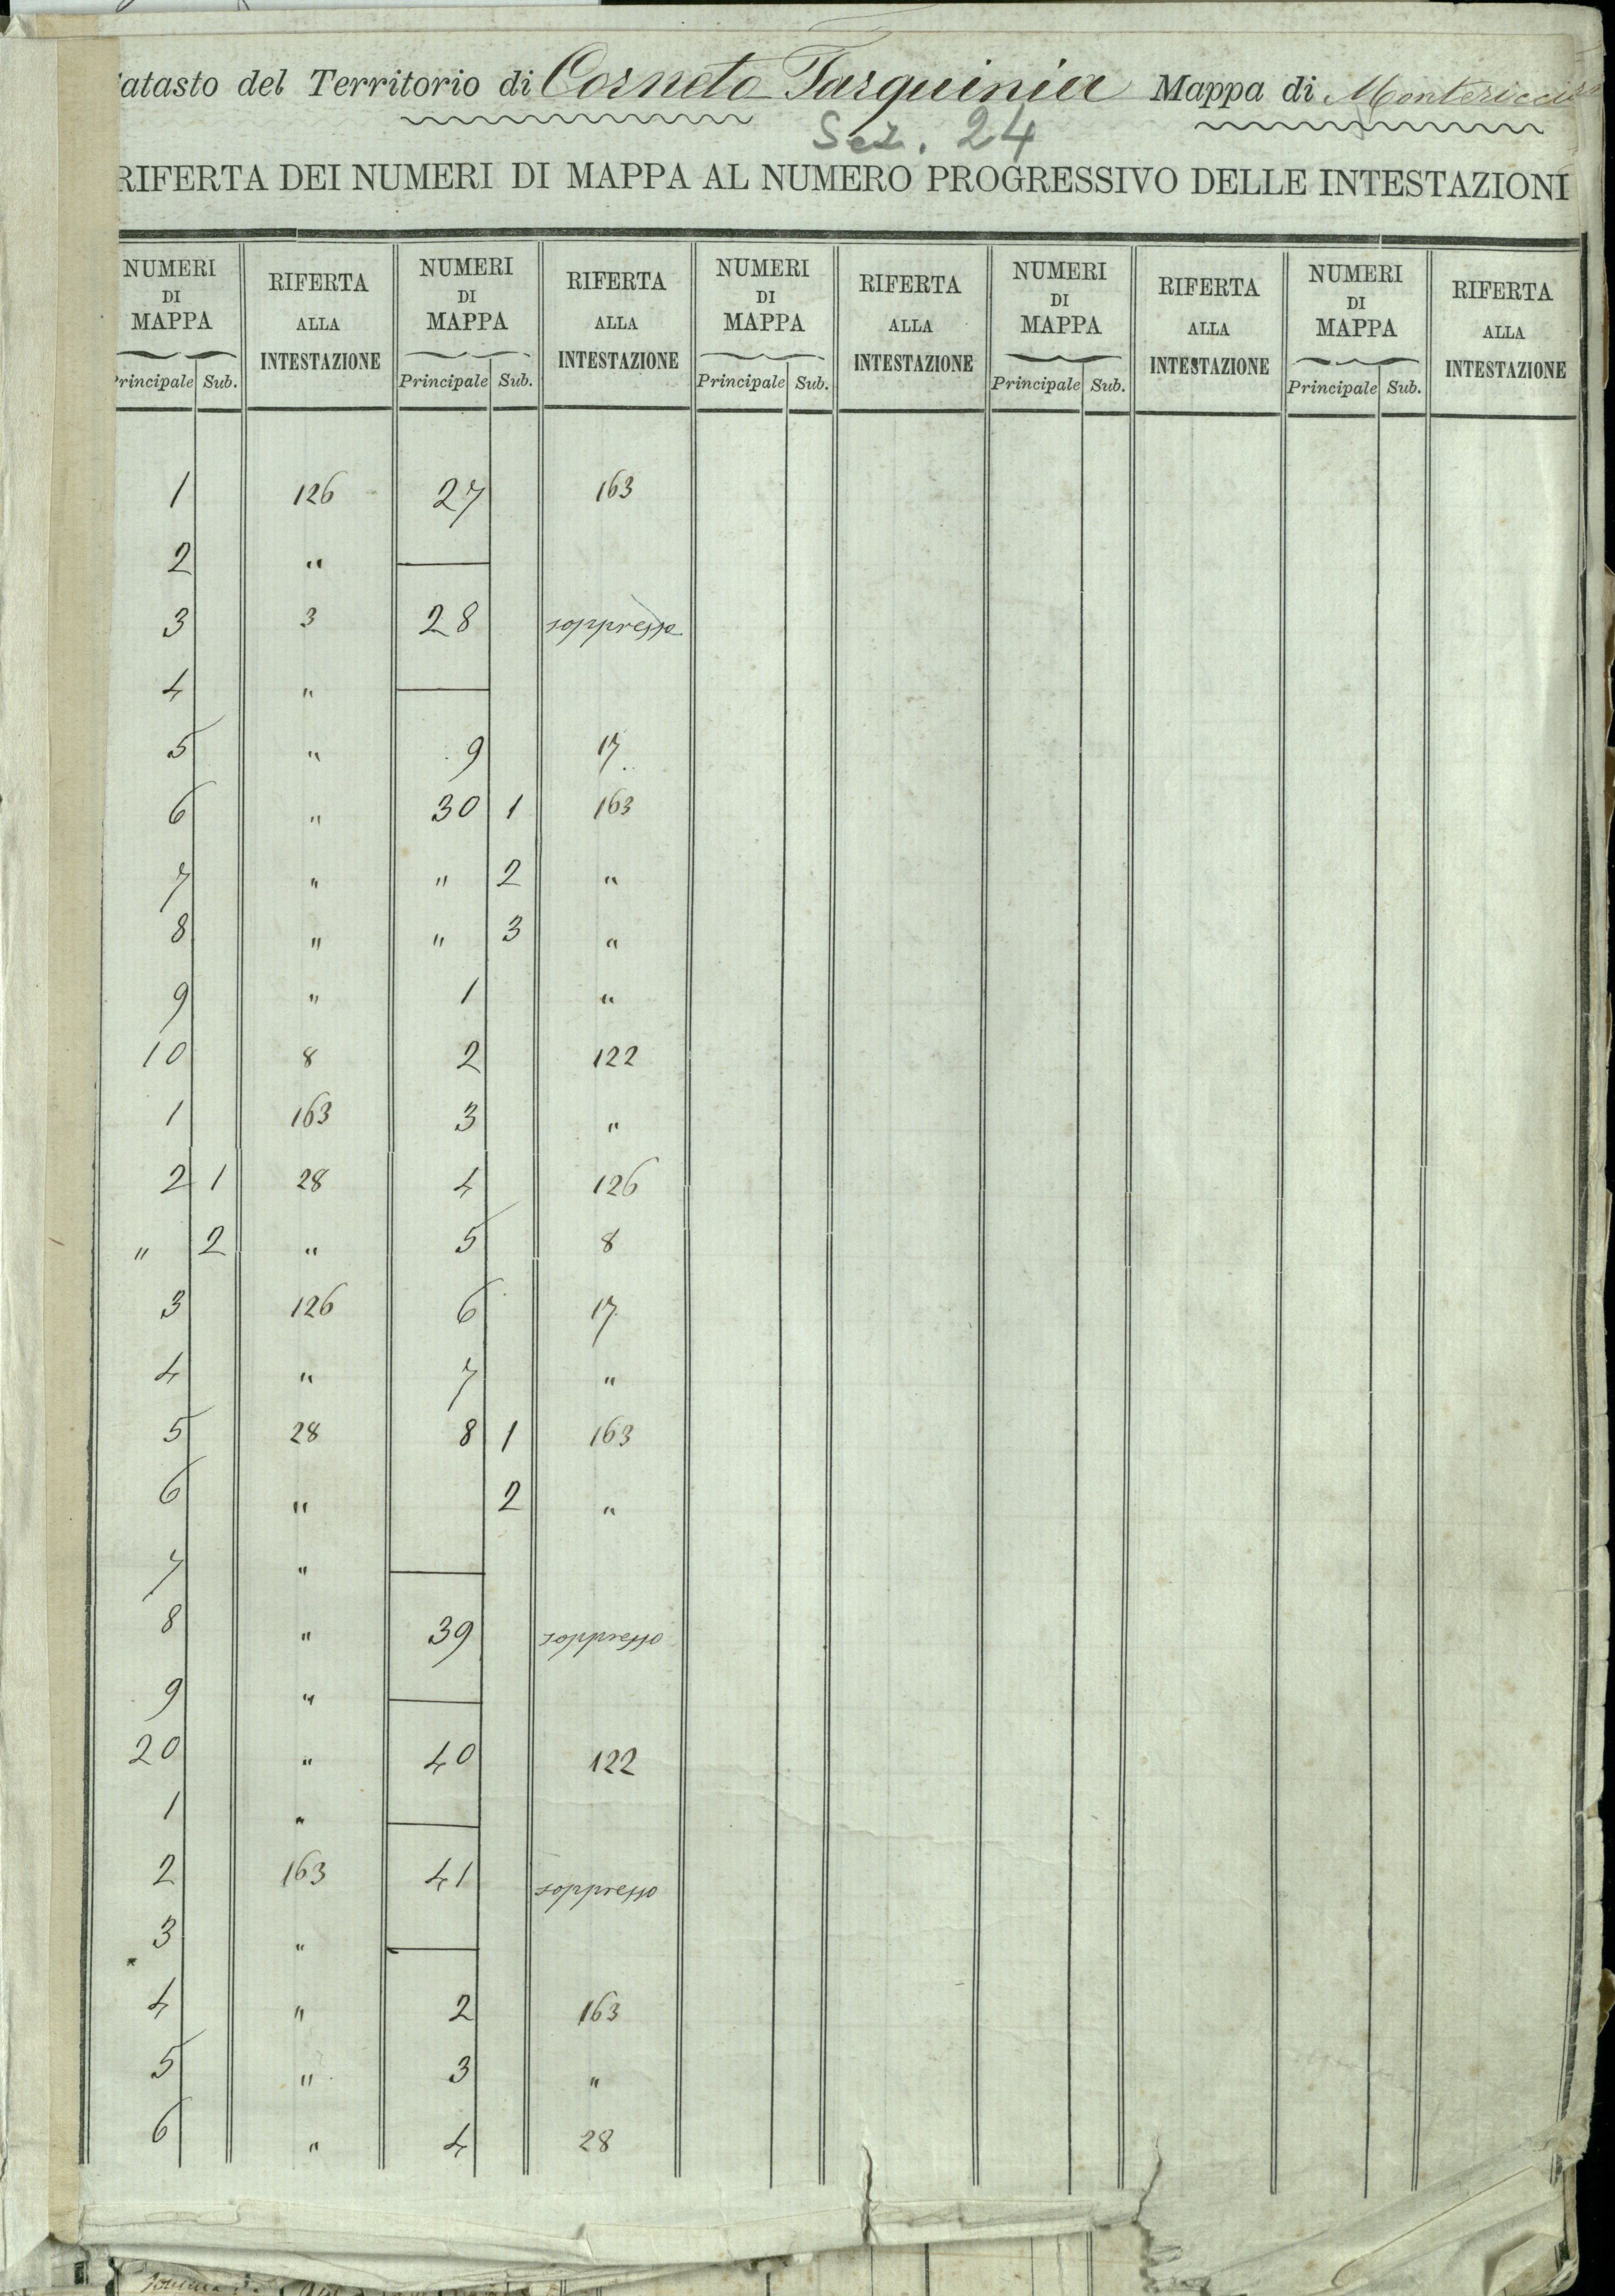 atasto del Territorio di Corneto Tarquinia Mappa di Montericcio
Sez. 24
RIFERTA DEI NUMERI DI MAPPA AL NUMERO PROGRESSIVO DELLE INTESTAZIONI
NUMERI DI MAPPA RIFERTA ALLA INTESTAZIONE NUMERI DI MAPPA RIFERTA ALLA INTESTAZIONE NUMERI DI MAPPA RIFERTA ALLA INTESTAZIONE NUMERI DI MAPPA RIFERTA ALLA INTESTAZIONE NUMERI DI MAPPA RIFERTA ALLA INTESTAZIONE
Principale Sub. Principale Sub. Principale Sub. Principale Sub. Principale Sub.
1 126 27 163
2 "
3 3 28 soppresso
4 "
5 " 9 17
6 " 30 1 163
7 " " 2 "
8 " " 3 "
9 " 1 "
10 8 2 122
1 163 3 "
2 1 28 4 126
" 2 " 5 8
3 126 6 17
4 " 7 "
5 28 8 1 163
6 " 2 "
7 "
8 " 39 soppresso
9 "
20 " 40 122
1 "
2 163 41 soppresso
3 "
4 " 2 163
5 " 3 "
6 " 4 28